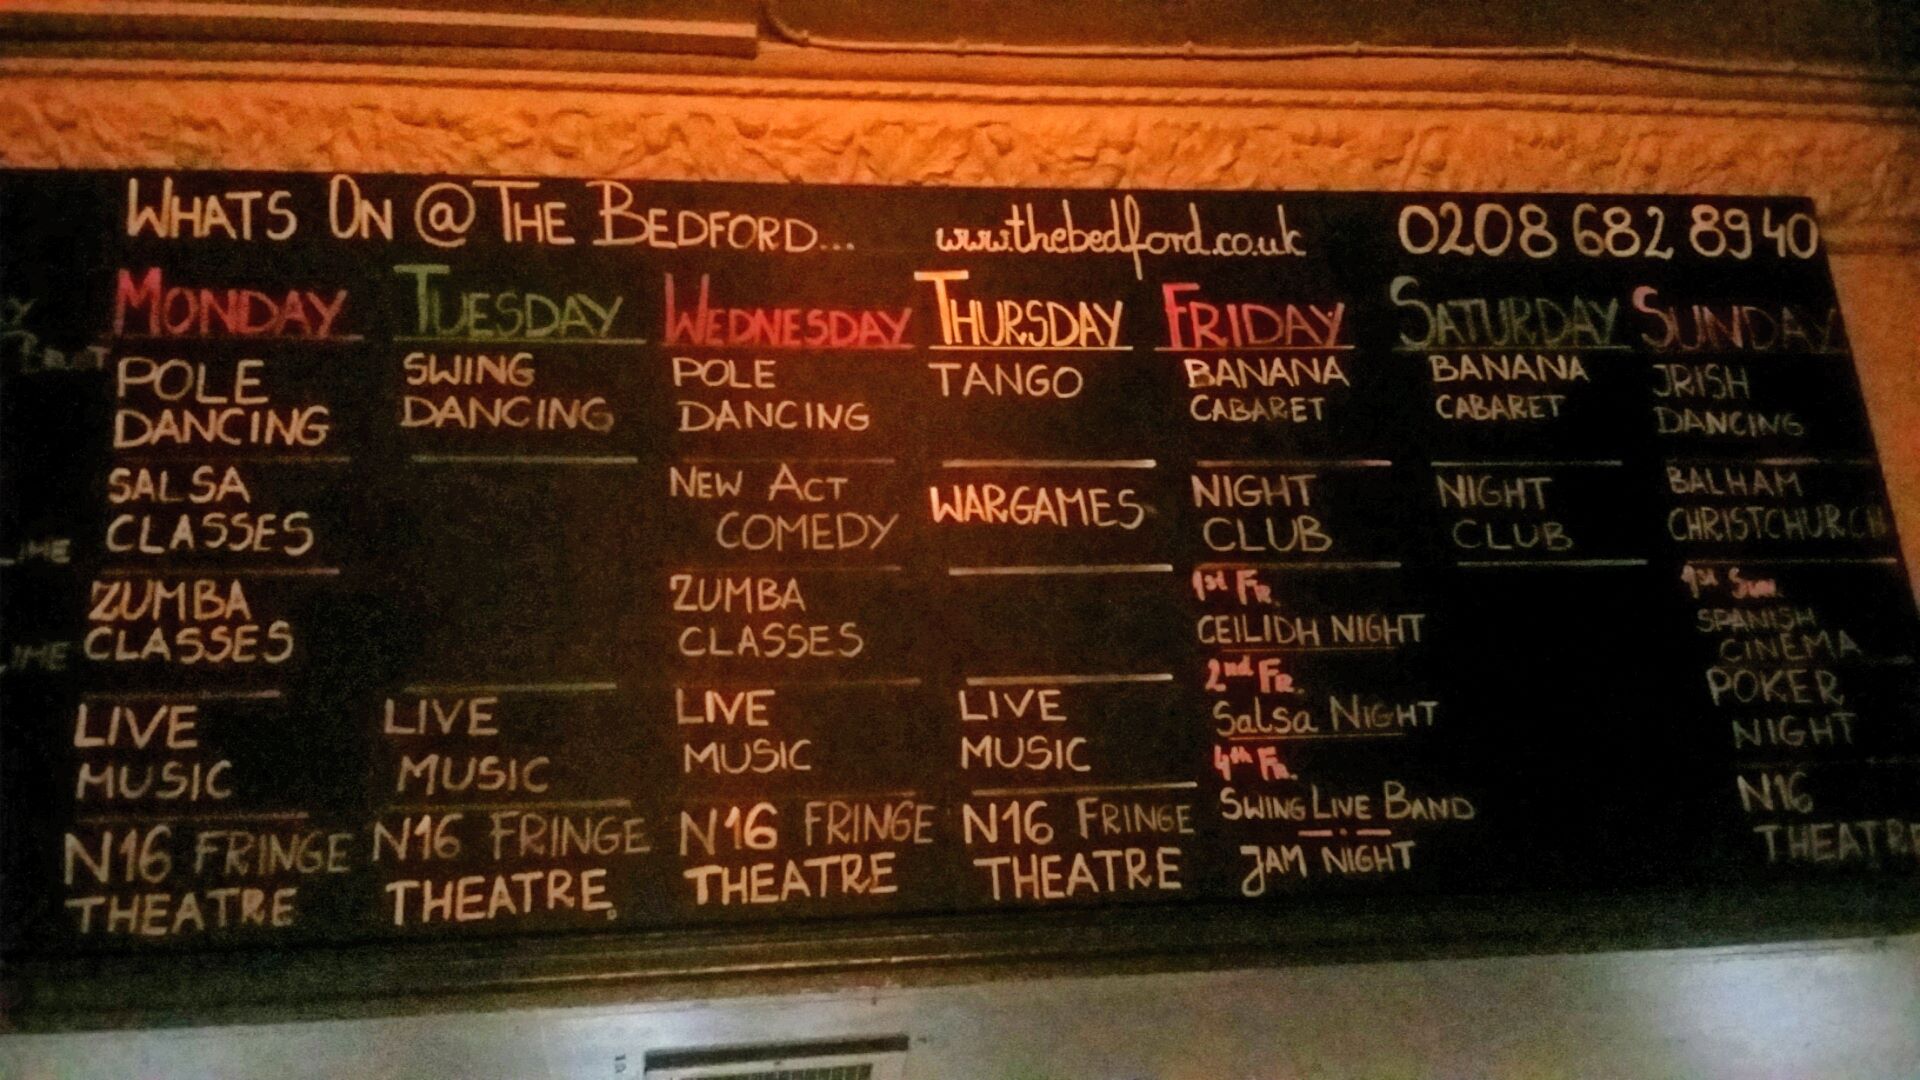 WHATS ON @ THE BEDFORD... www.thebedford.co.uk 0208 682 8940
MONDAY
POLE
DANCING
SALSA
CLASSES
ZUMBA
CLASSES
LIVE
MUSIC
N16 FRINGE
THEATRE
TUESDAY
SWING
DANCING
LIVE
MUSIC
N16 FRINGE
THEATRE
WEDNESDAY
POLE
DANCING
NEW ACT
COMEDY
ZUMBA
CLASSES
LIVE
MUSIC
N16 FRINGE
THEATRE
THURSDAY
TANGO
WARGAMES
LIVE
MUSIC
N16 FRINGE
THEATRE
FRIDAY
BANANA
CABARET
NIGHT
CLUB
1st FR.
CEILIDH NIGHT
2nd FR.
Salsa NIGHT
4th FR.
SWING LIVE BAND
JAM NIGHT
SATURDAY
BANANA
CABARET
NIGHT
CLUB
SUNDAY
IRISH
DANCING
BALHAM
CHRISTCHURCH
1st SUN.
SPANISH
CINEMA
POKER
NIGHT
N16
THEATRE